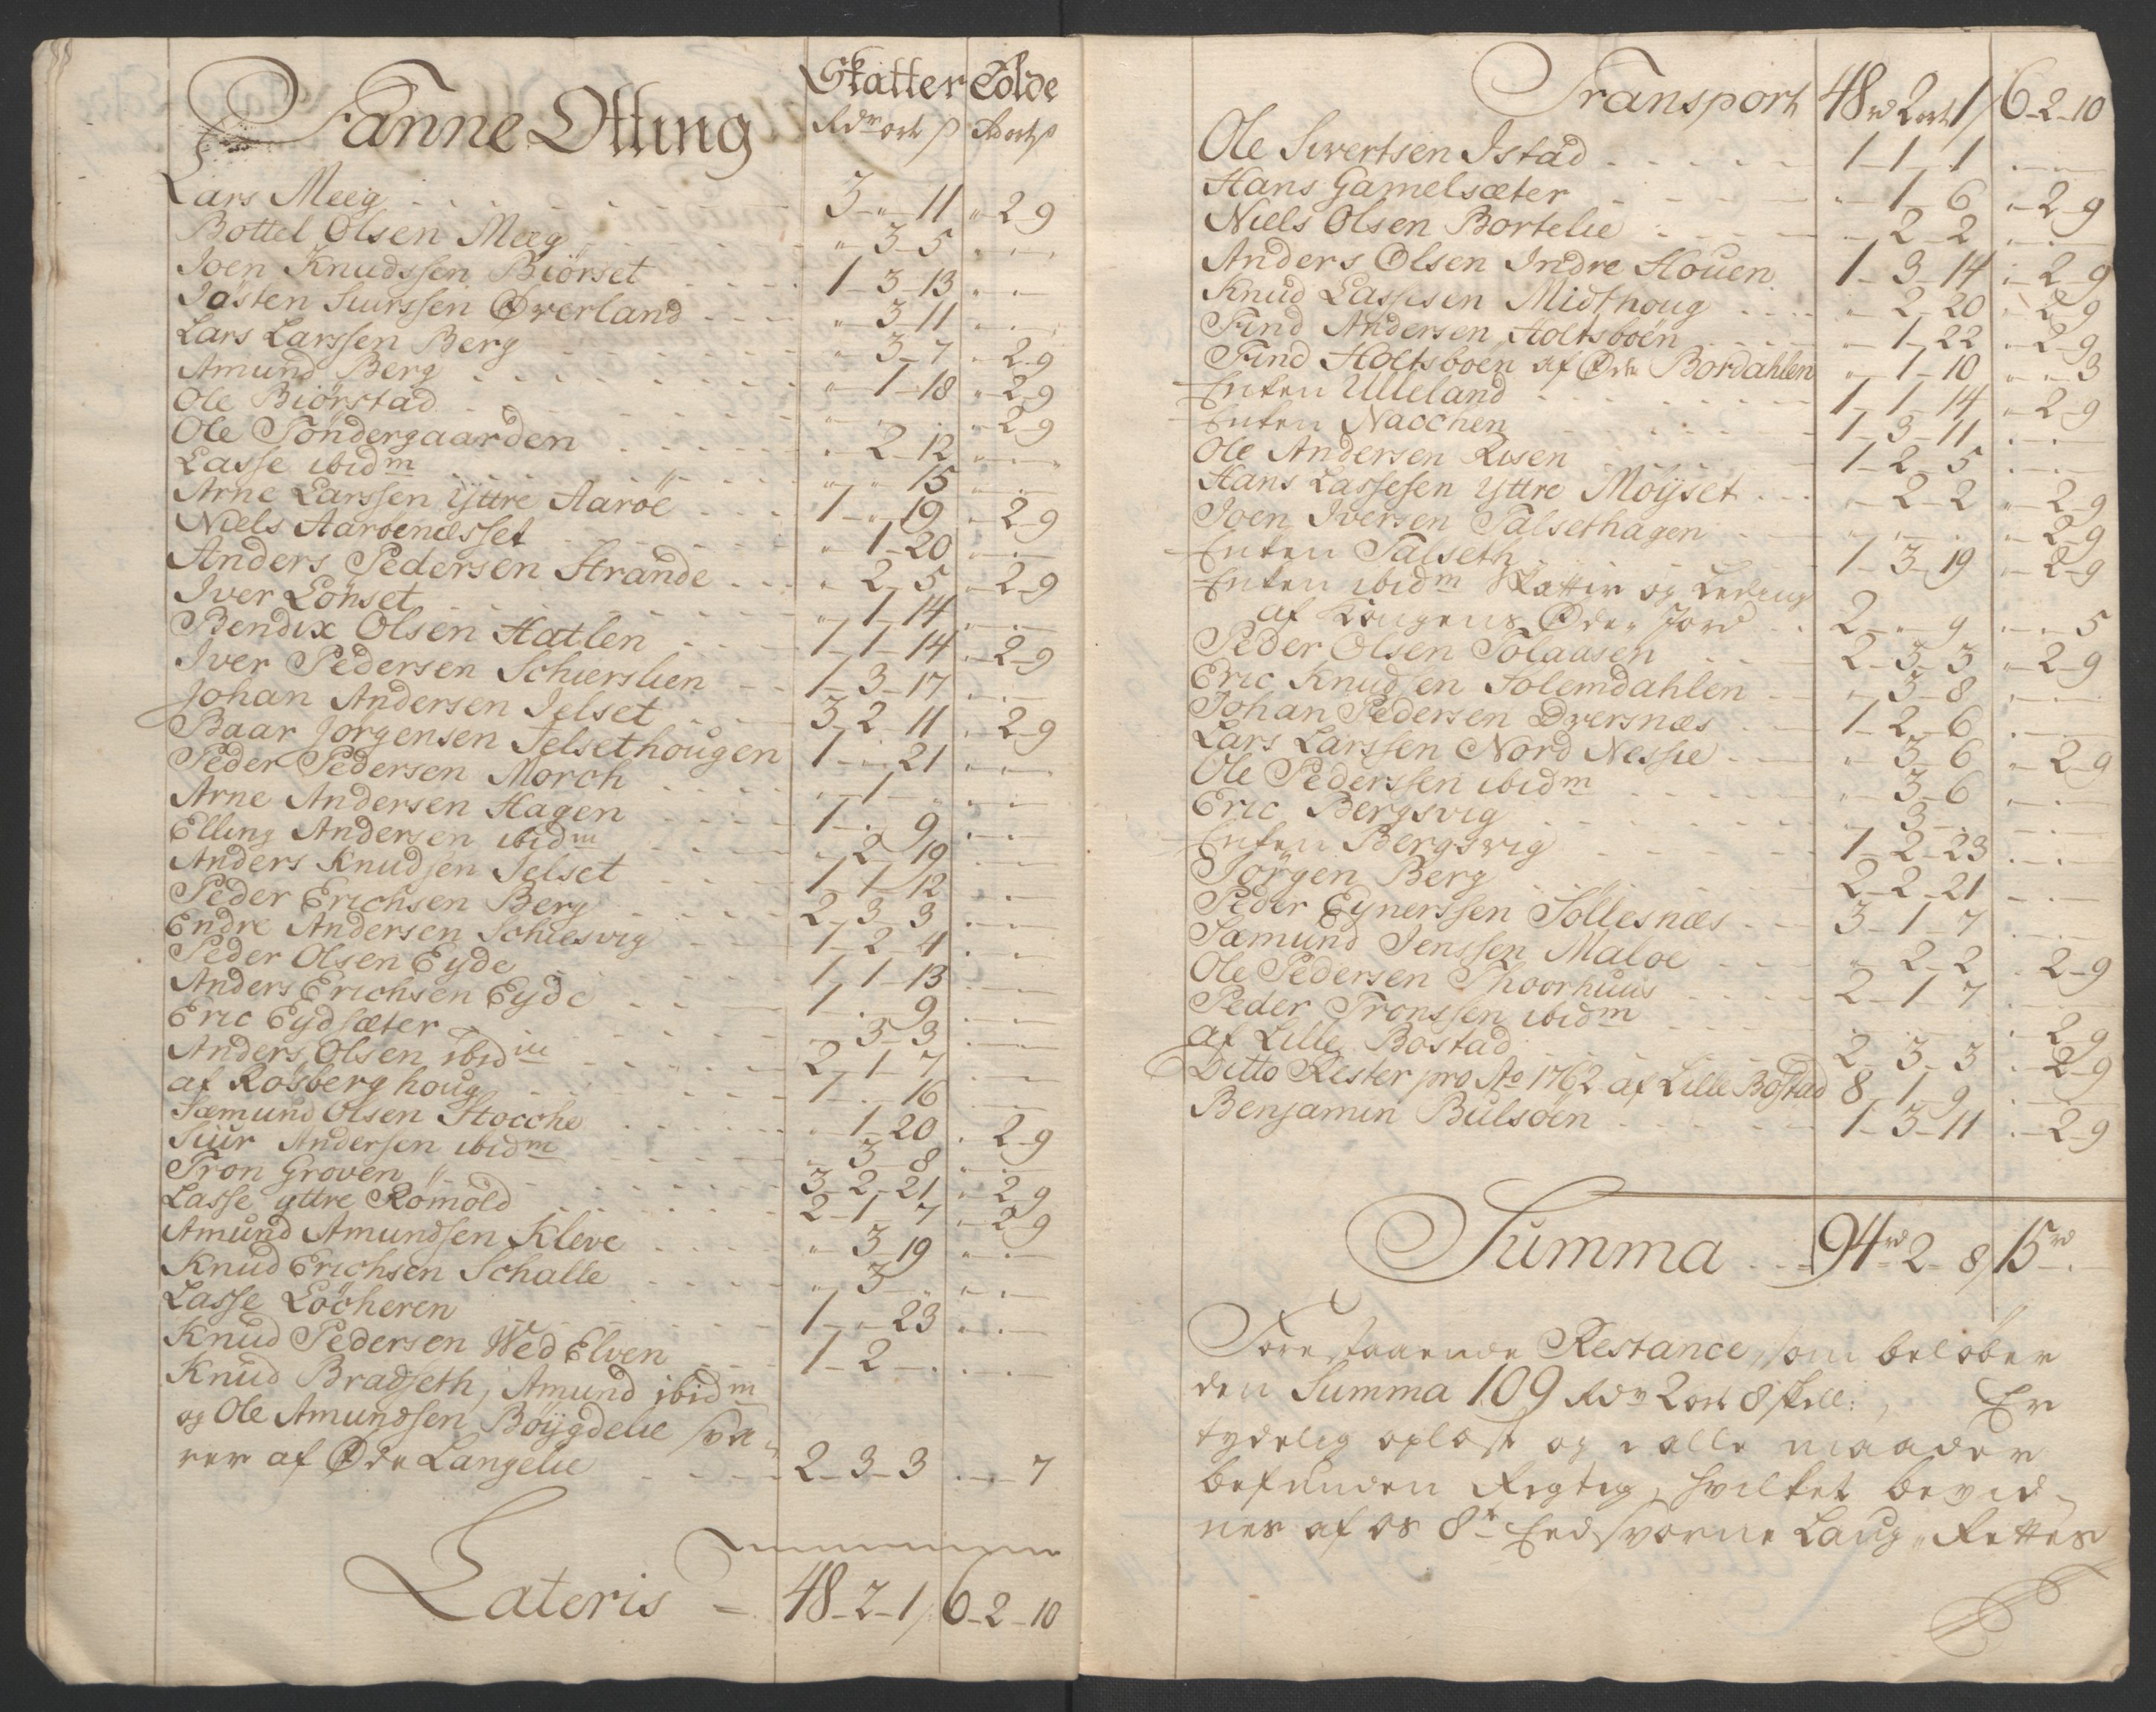 Fanne Otting Skatter Tolde
Rdr ort ß Rd ort ß
Lars Meeg 3 - " - 11 " - 2 - 9
Bottel Olsen Meeg " - 3 - 5
Joen Knudssen Biörset 1 - 3 - 13
Josten Siurssen Øverland " - 3 - 11
Lars Larssen Berg " - 3 - 7 " - 2 - 9
Amund Berg " - 1 - 18 " - 2 - 9
Ole Biörstad " - 2 - 9
Ole Töndergaarden " - 2 - 12
Lasse ibidm " - " - 15
Arne Larssen Yttre Aaröe 1 - " - 19 " - 2 - 9
Niels Aaroenæsset " - 1 - 20
Anders Pedersen Strande " - 2 - 5 " - 2 - 9
Iver Lönset " - 1 - 14
Bendix Olsen Hatlen 1 - 1 - 14 " - 2 - 9
Iver Pedersen Schierslien 1 - 3 - 17
Johan Andersen Jelset 3 - 2 - 11 " - 2 - 9
Baar Jörgensen Jelsethougen 1 - " - 21
Peder Pedersen Morch " - 1 - "
Arne Andersen Hagen 1 - " - 9
Elling Andersen ibidm " - 2 - 19
Anders Knudsen Jelset 1 - 1 - 12
Peder Erichsen Berg 2 - 3 - 3
Endre Andersen Schiesvig 1 - 2 - 4
Peder Olsen Eyde 1 - 1 - 13
Anders Erichsen Eyde 1 - " - 9
Eric Eydsæter " - 3 - 3
Anders Olsen ibidm 2 - 1 - 7
af Rösberg houg 1 - " - 16
Sæmund Olsen Stocche " - 1 - 20 " - 2 - 9
Siur Andersen ibidm " - 3 - 8
Tron Groven 3 - 2 - 21 " - 2 - 9
Lasse yttre Römold 2 - 1 - 7 " - 2 - 9
Amund Amundsen Kleve " - 3 - 19
Knud Erichsen Schalle " - 3 - "
Lasse Löcheren 1 - " - 23
Knud Pedersen Wed Elven 1 - 2 - "
Knud Bradseth, Amund ibidm
og Ole Amundsen Böygdelie sva-
rer af Øde Langelie 2 - 3 - 3 " - " - 7
Lateris 48 - 2 - 1 6 - 2 - 10
Transport 48 rd 2 ort 1 6 - 2 - 10
Ole Sivertsen Istad 1 - 1 - 1
Hans Gamelsæter " - 1 - 6 " - 2 - 9
Niels Olsen Bortelie " - 2 - 2
Anders Olsen Indre Houen 1 - 3 - 14 " - 2 - 9
Knud Lassesen Midthoug " - 2 - 20 " - 2 - 9
Find Andersen Holtsboen " - 1 - 22 " - 2 - 9
Find Holtsboen af Øde Bordahlen " - 1 - 10 " - " - 3
Enken Ulleland 1 - 1 - 14 " - 2 - 9
Enken Nacchen 1 - 3 - 11
Ole Andersen Risen 1 - 2 - 5
Hans Lassesen Yttre Möyset " - 2 - 2 " - 2 - 9
Joen Iversen Talsethagen " - 2 - 9
Enken Talseth 1 - 3 - 19 " - 2 - 9
Enken ibidm Skatter og Leding
af Kongens Øde Jord 2 - " - 9 " - " - 5
Peder Olsen Solaasen 2 - 3 - 3 " - 2 - 9
Eric Knudsen Solemdahlen " - 3 - 8
Johan Pedersen Dversnæs 1 - 2 - 6
Lars Larssen Nord Nessie " - 3 - 6 " - 2 - 9
Ole Pederssen ibidm " - 3 - 6
Eric Bergsvig " - 3 - "
Enken Bergsvig 1 - 2 - 23
Jörgen Berg 2 - 2 - 21
Peder Eynerssen Sollesnæs 3 - 1 - 7
Sæmund Jenssen Maloe " - 2 - 2 " - 2 - 9
Ole Pedersen Thoorhuus 2 - 1 - 7
Peder Tronssen ibidm " - 2 - 9
af Lille Bostad 2 - 3 - 3 " - 2 - 9
Ditto Rester pro Ao 1762 af Lille Bostad 8 - 1 - 9
Benjamin Bulsöen 1 - 3 - 11 " - 2 - 9
Summa 94 rd - 2 - 8 15 rd
Forestaaende Restance, som beløber
den Summa 109 Rdr 2 ort 8 skill: , Er
tydelig oplæst og i alle maader
befunden Rigtig, hvilket bevid-
nes af os 8te Eedsvorne Laug-Rettes